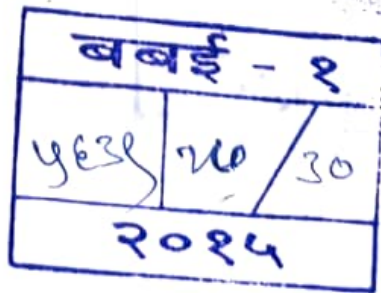 बबई - १
५६३९ २७ / ३०
२०१५